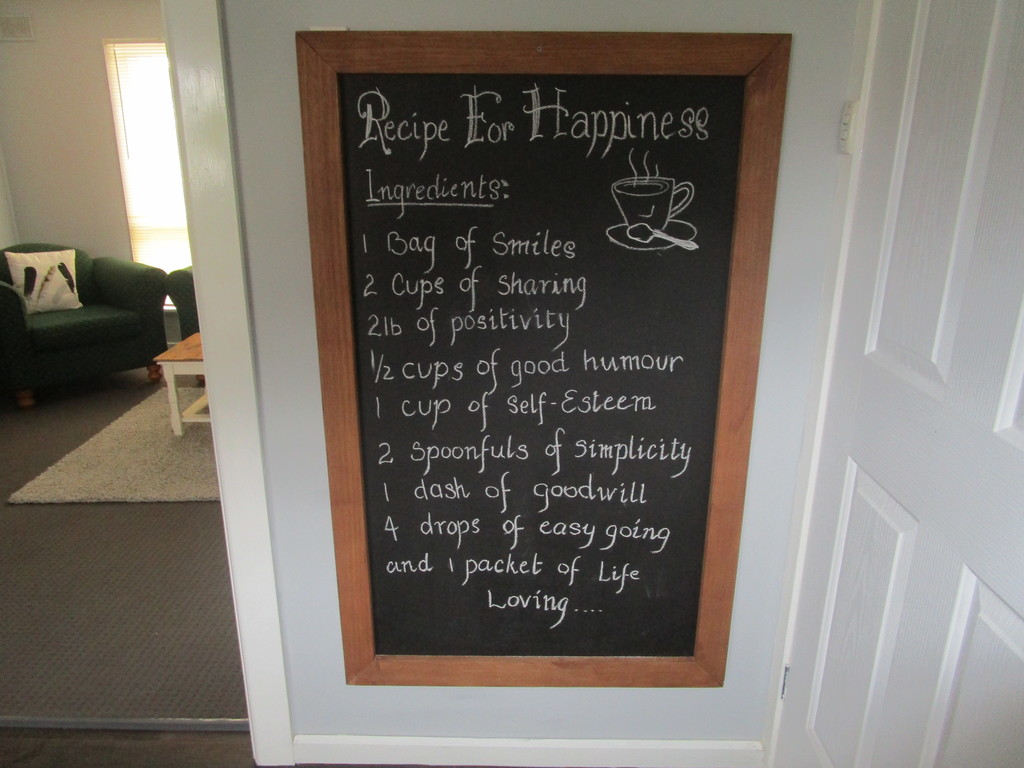 Recipe For Happiness
Ingredients:
1 Bag of Smiles
2 Cups of Sharing
2lb of positivity
1/2 cups of good humour
1 cup of Self-Esteem
2 Spoonfuls of Simplicity
1 dash of goodwill
4 drops of easy going
and 1 packet of Life
Loving....